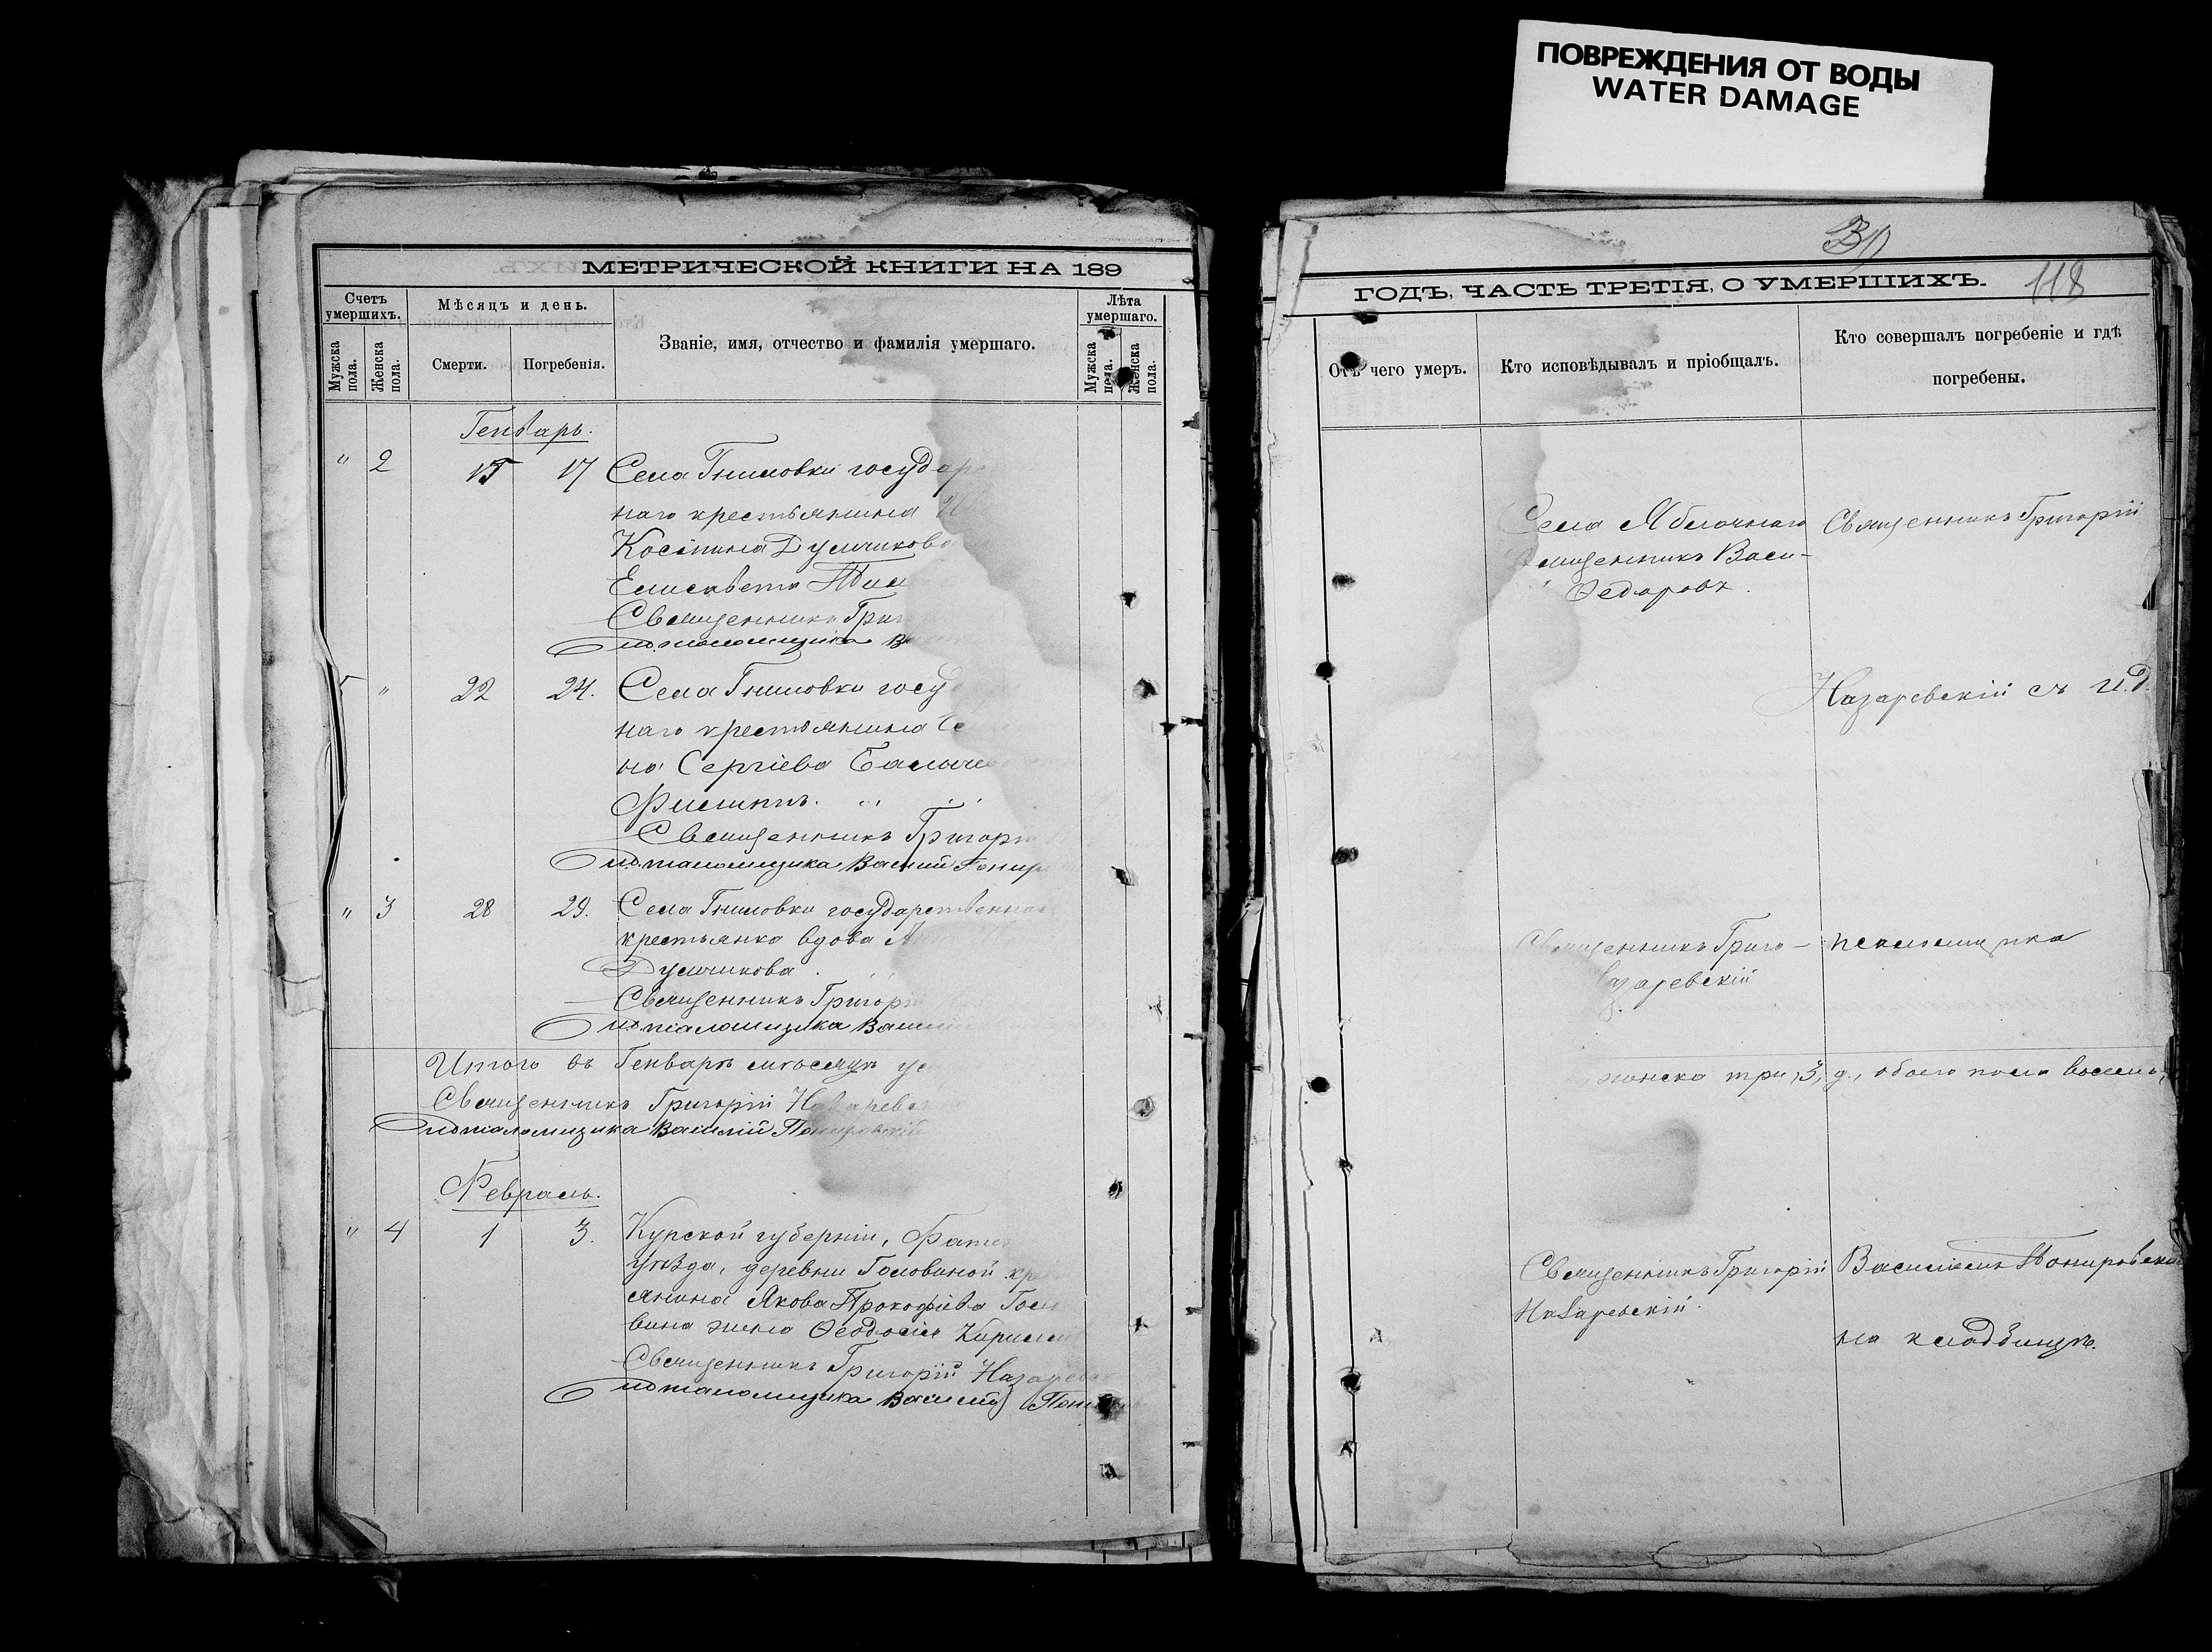 ПОВРЕЖДЕНИЯ ОТ ВОДЫ
WATER DAMAGE
МЕТРИЧЕСКОЙ КНИГИ НА 189
Счетъ умершихъ.
Мѣсяцъ и день.
Званіе, имя, отчество и фамилія умершаго.
Лѣта умершаго.
Мужска пола.
Женска пола.
Смерти.
Погребенія.
Мужска пола.
Женска пола.
Генварь.
" 2 15 17 Села Гниловки государ
наго крестьянина
Косьмина Думчикова
Елисавета
Священникъ Григ
псаломщика В
5 " 22 24. Села Гниловки госу
наго крестьянина Се
на Сергіева
Филиппъ.
Священникъ Григорі
псаломщика Василій Понир
" 3 28 29. Села Гниловки государственна
крестьянка вдова
Думчикова.
Священникъ Григорі
псаломщика Василій
Итого въ Генварѣ мѣсяцѣ
Священникъ Григорій Назаревс
псаломщика Василій Понировскій
Февраль.
" 4 1 3. Курской губерніи, Фате
уѣзда, деревни Головиной кре
янина Якова Прокофіева Голо
вина жена Ѳеодосія Кирилл
Священникъ Григорій Назаревс
псаломщика Василій Пони
30
118
ГОДЪ, ЧАСТЬ ТРЕТІЯ, О УМЕРШИХЪ.
Отъ чего умеръ.
Кто исповѣдывалъ и пріобщалъ.
Кто совершалъ погребеніе и гдѣ погребены.
Села Яблочнаго Священникъ Григорій
священникъ Васи-
Ѳедоровъ.
Назаревскій съ и.д.
Священникъ Григо- псаломщика
азаревскій
женска три, 3, д., обоего пола восемь,
Священникъ Григорій Василіемъ Понировски
Назаревскій.
на кладбищѣ.